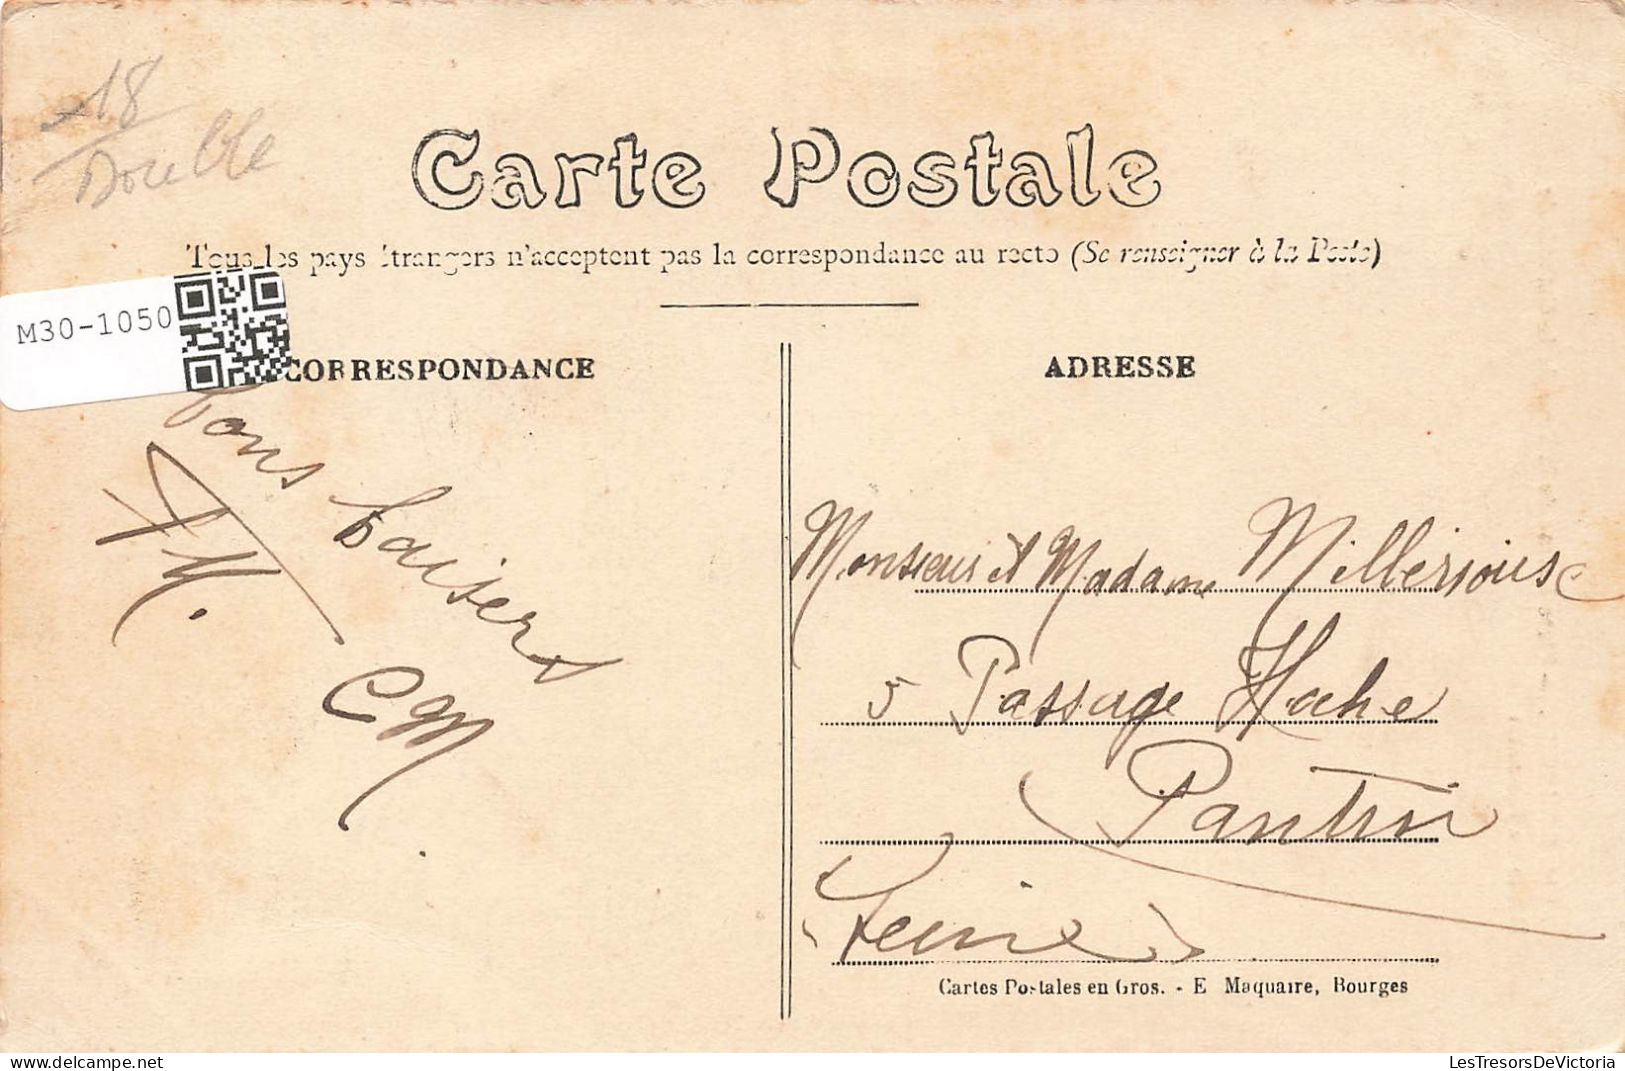 18
Double
Carte Postale
Tous les pays étrangers n'acceptent pas la correspondance au recto (Se renseigner à la Poste)
M30-1050
CORRESPONDANCE
ADRESSE
bons baisers
M.
CM
Monsieur et Madame Millerioux
5 Passage Hache
Pantin
(Seine)
Cartes Postales en Gros. - E Maquaire, Bourges
LesTresorsDeVictoria